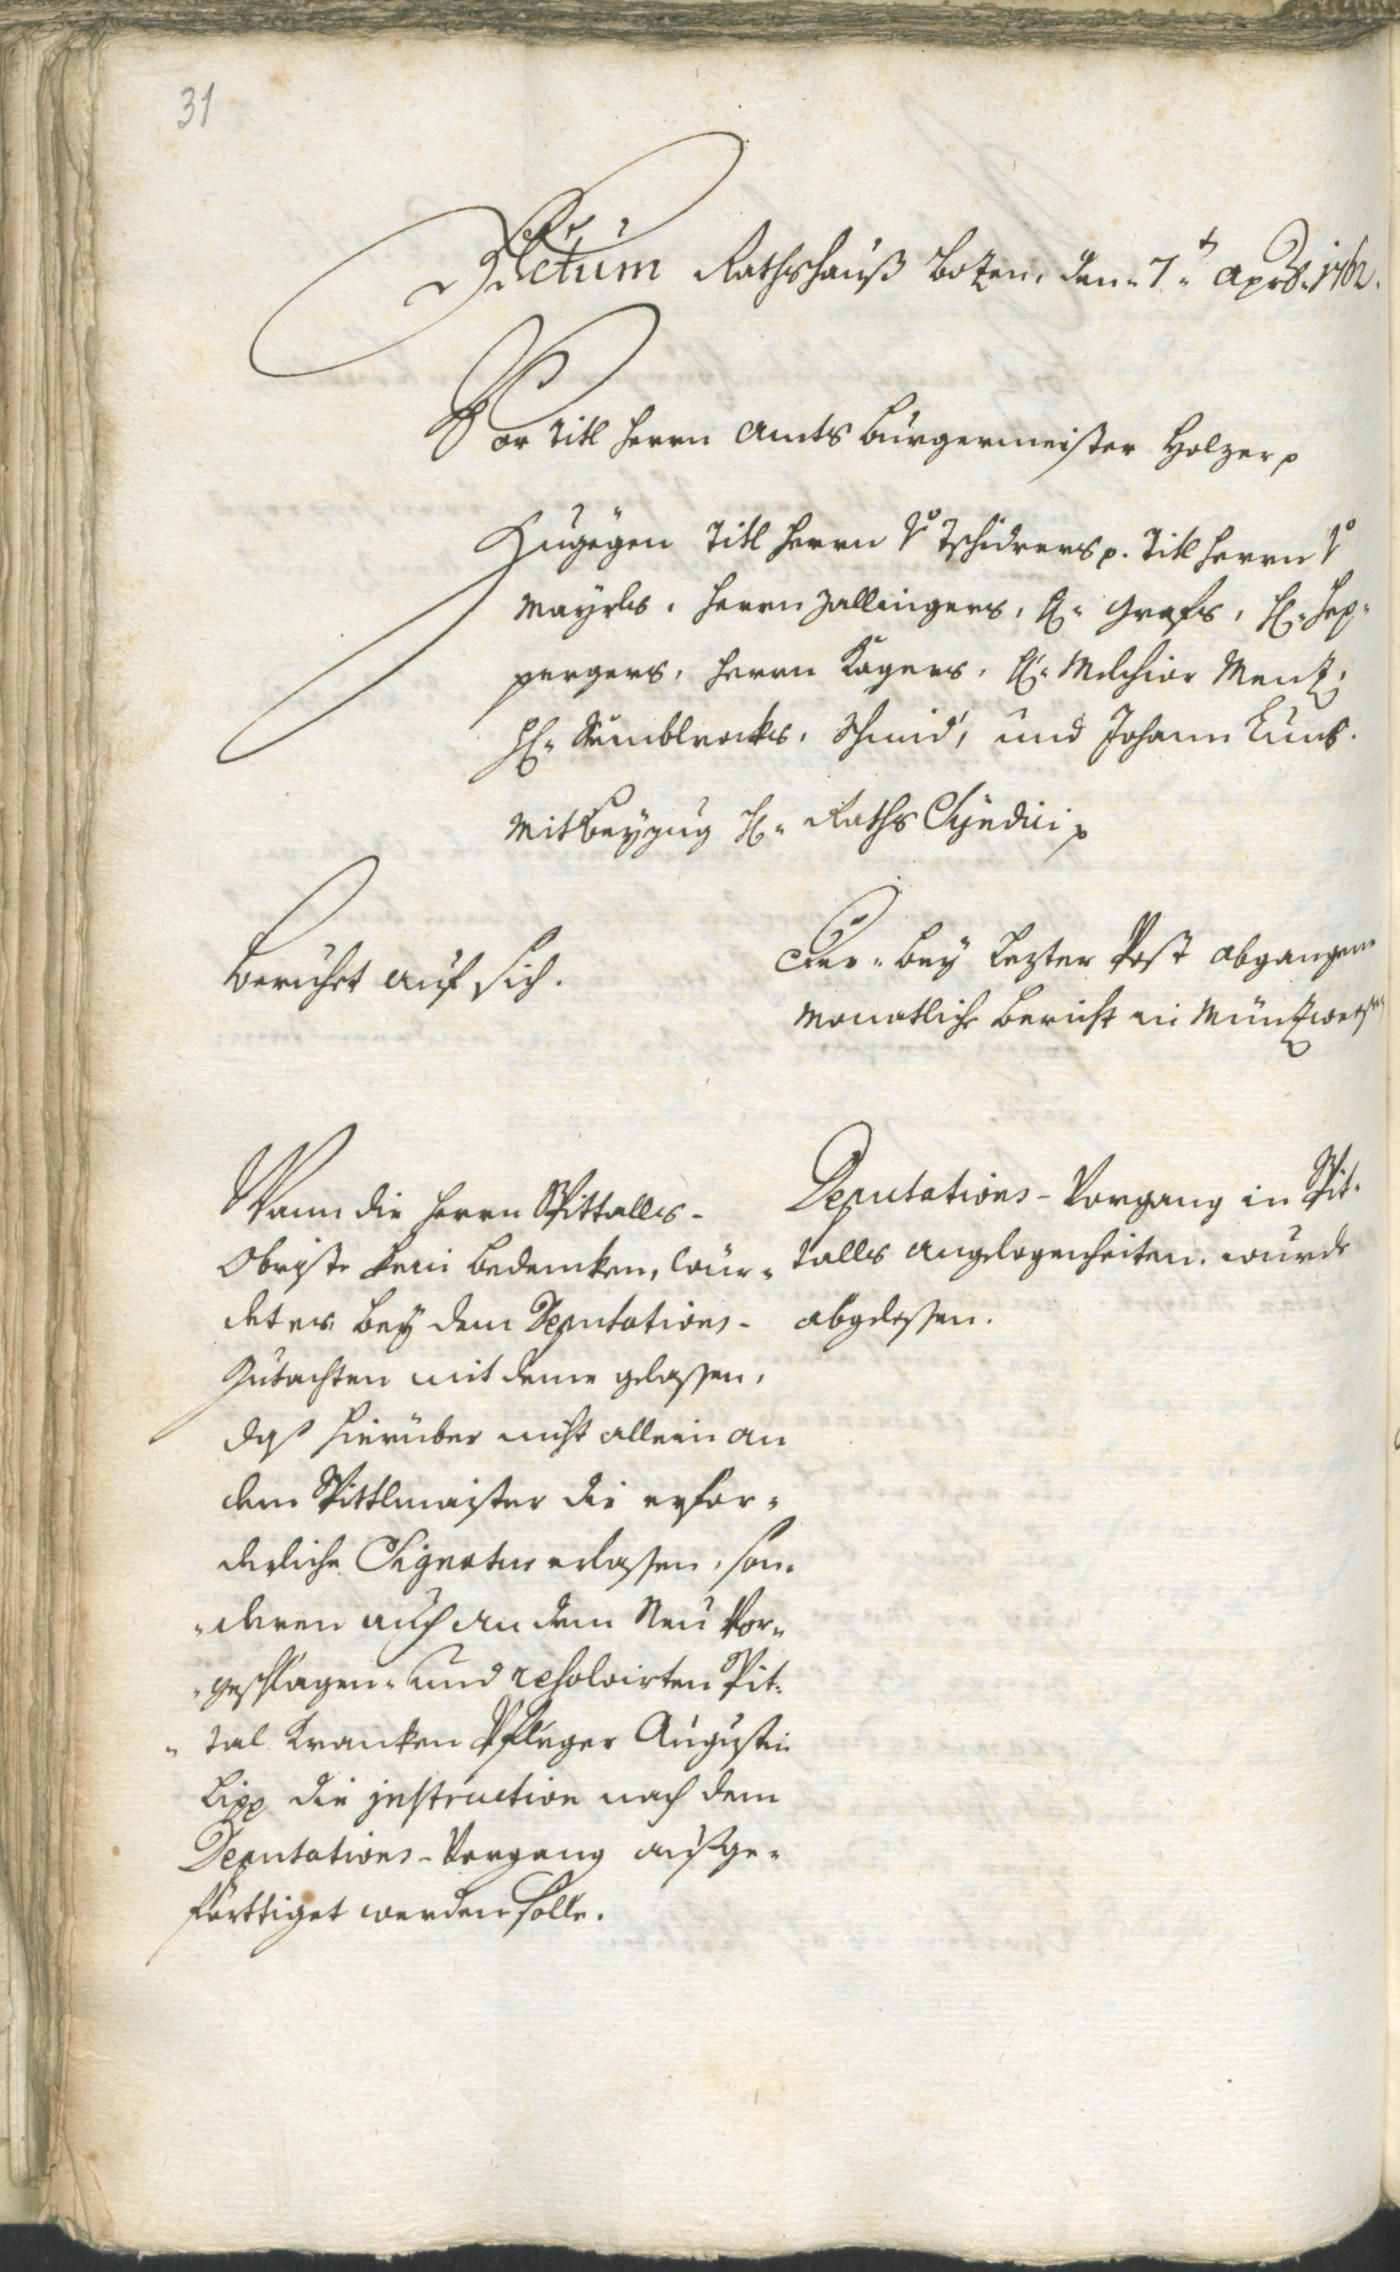 31
Actum Rathshauß Bozen, den 7t Aprill 1762.
Vor Titl Herrn Amts Bürgermeister Holzer p
Zugegen Titl Herrn Dr Tschidrers p. Titl Herrn Dr
Mayrls, Herrn Zallingers, H: Grafs, H: Hep=
pergers, Herrn Kagers, H: Melchior Menz,
H: Sumblrocks, Schmid, und Johann Kunz.
Mit Beyzug H: Raths Syndici p
Beruhet auf sich.
Der= bey lezter Post abgangene
Monatliche Bericht in Münzwesen
Wann die Herrn Spittalls-
Obriste kein Bedencken, wür=
det es bey dem Deputations-
Gutachten mit deme gelassen,
daß hierüber nicht allein an
dem Spittlmaister die erfor=
derliche Signatur erlassen, son=
=deren auch an dem Neu Vor=
=geschlagen= und resolvirten Spit=
=tal Krancken Pfleger Augustin
Lipp die jnstruction nach dem
Deputations-Vorgang außge=
förttiget werden solle.
Deputations-Vorgang in Spit=
talls angelegenheiten. wurde
abgelesen.